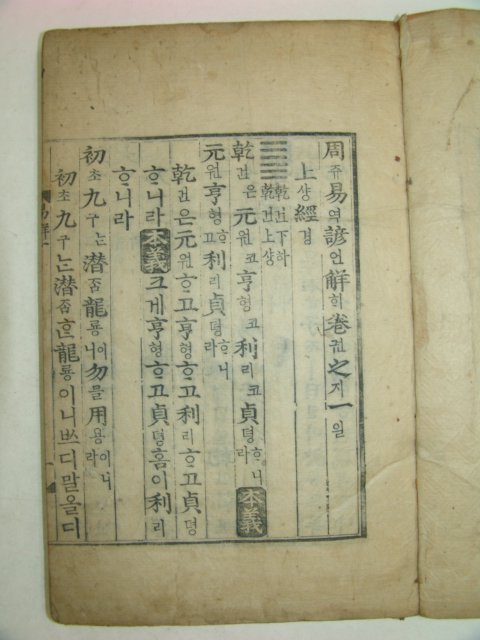 周쥬易역諺언解ᄒᆡ卷권之지一일
上샹經경
䷀ 乾건下하 乾건上샹
乾건은元원코亨형코利리코貞뎡ᄒᆞ니라 本義
元원亨형고利리貞뎡ᄒᆞ니라
乾건은元원ᄒᆞ고亨형ᄒᆞ고利리ᄒᆞ고貞뎡
ᄒᆞ니라 本義 크게亨형ᄒᆞ고貞뎡홈이利리
ᄒᆞ니라
初초九구ᄂᆞᆫ潛ᄌᆞᆷ龍룡이니勿믈用용이니라
初초九구ᄂᆞᆫ潛ᄌᆞᆷᄒᆞᆫ龍룡이니ᄡᅳ디말올디